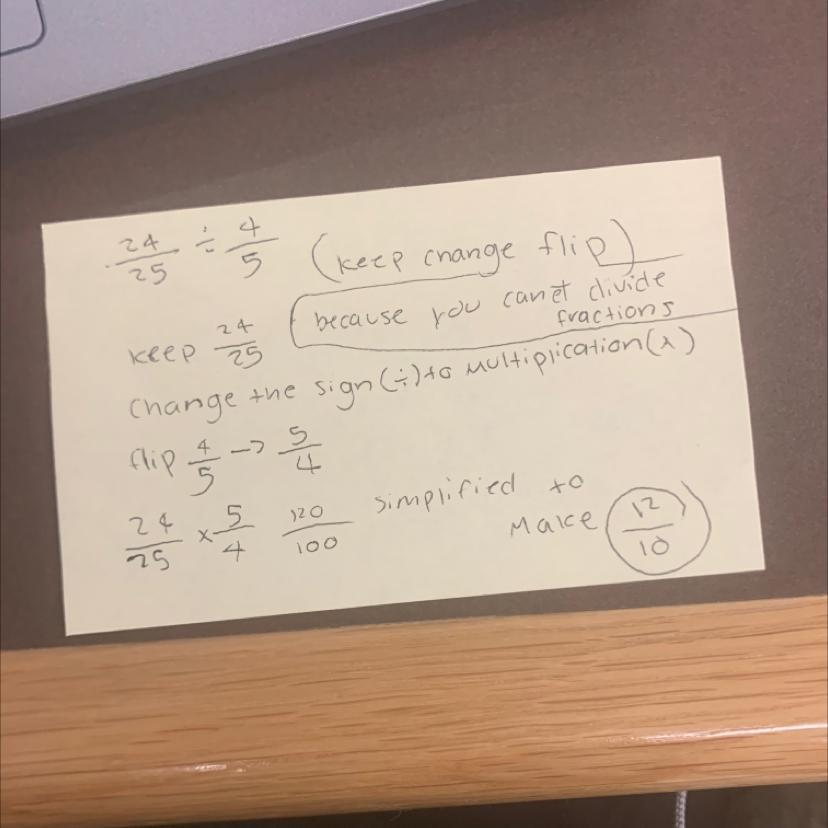 24/25 ÷ 4/5 (keep change flip)
because you can't divide
fractions
keep 24/25
change the sign (÷) to multiplication (x)
flip 4/5 -> 5/4
24/25 x 5/4 120/100 simplified to
make 12/10